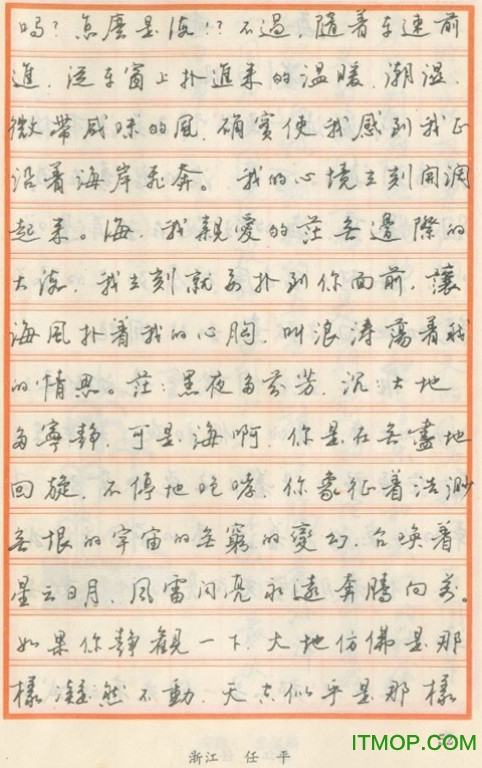 吗？怎麽是海！？不過，隨着车速前
進，從车窗上扑進来的温暖、潮湿、
微带咸味的風，确實使我感到我正
沿着海岸飛奔。我的心境立刻開濶
起来。海，我親愛的茫無邊際的
大海，我立刻就要扑到你面前，讓
海風扑着我的心胸，叫浪涛蕩着我
的情思。茫茫黑夜多芬芳，沉沉大地
多寧静，可是海啊，你是在無盡地
回旋，不停地咆哮，你象征着浩渺
無垠的宇宙的無窮的變幻，召唤着
星云日月、風雷闪亮永遠奔腾向前。
如果你静觀一下，大地仿佛是那
樣凝然不動，天空似乎是那樣
浙江 任平
ITMOP.COM